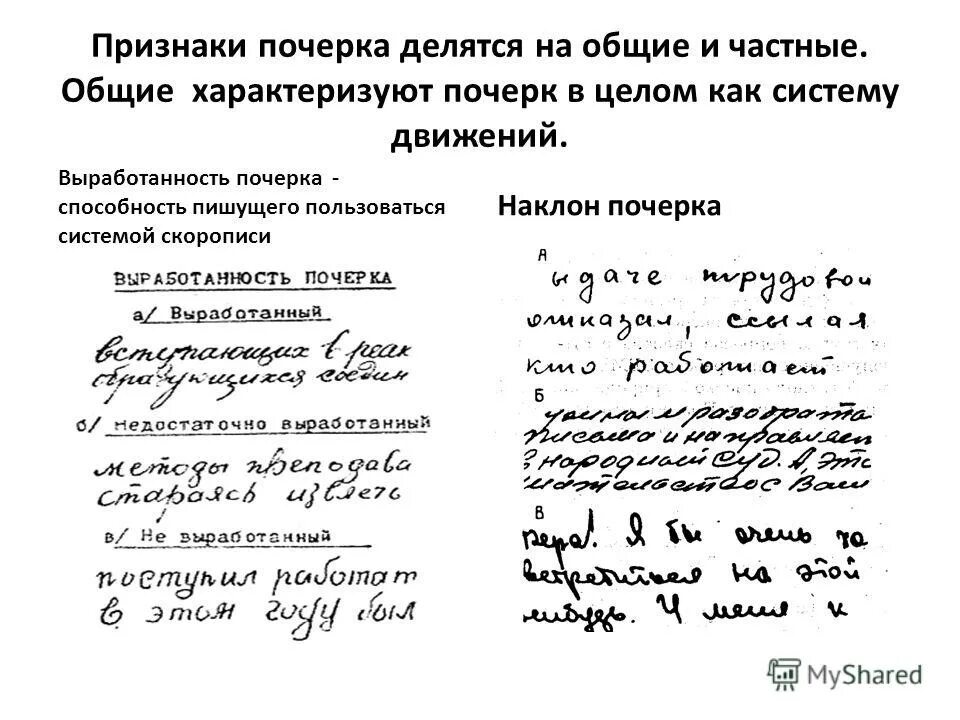 Признаки почерка делятся на общие и частные.
Общие характеризуют почерк в целом как систему
движений.
Выработанность почерка -
способность пишущего пользоваться
системой скорописи
ВЫРАБОТАННОСТЬ ПОЧЕРКА
а/ Выработанный
вступающих в реак
образующихся соедин
б/ Недостаточно выработанный
методы преподава
стараясь извлечь
в/ Не выработанный
поступил работат
в этом году был
Наклон почерка
А
ыдаче трудовой
отказал, ссылая
кто работает
Б
разобрата
письмо и направляет
в народный суд. А, это
Вам
В
Вера! Я бы очень хо
встретиться на этой
нибудь. У меня к
MyShared